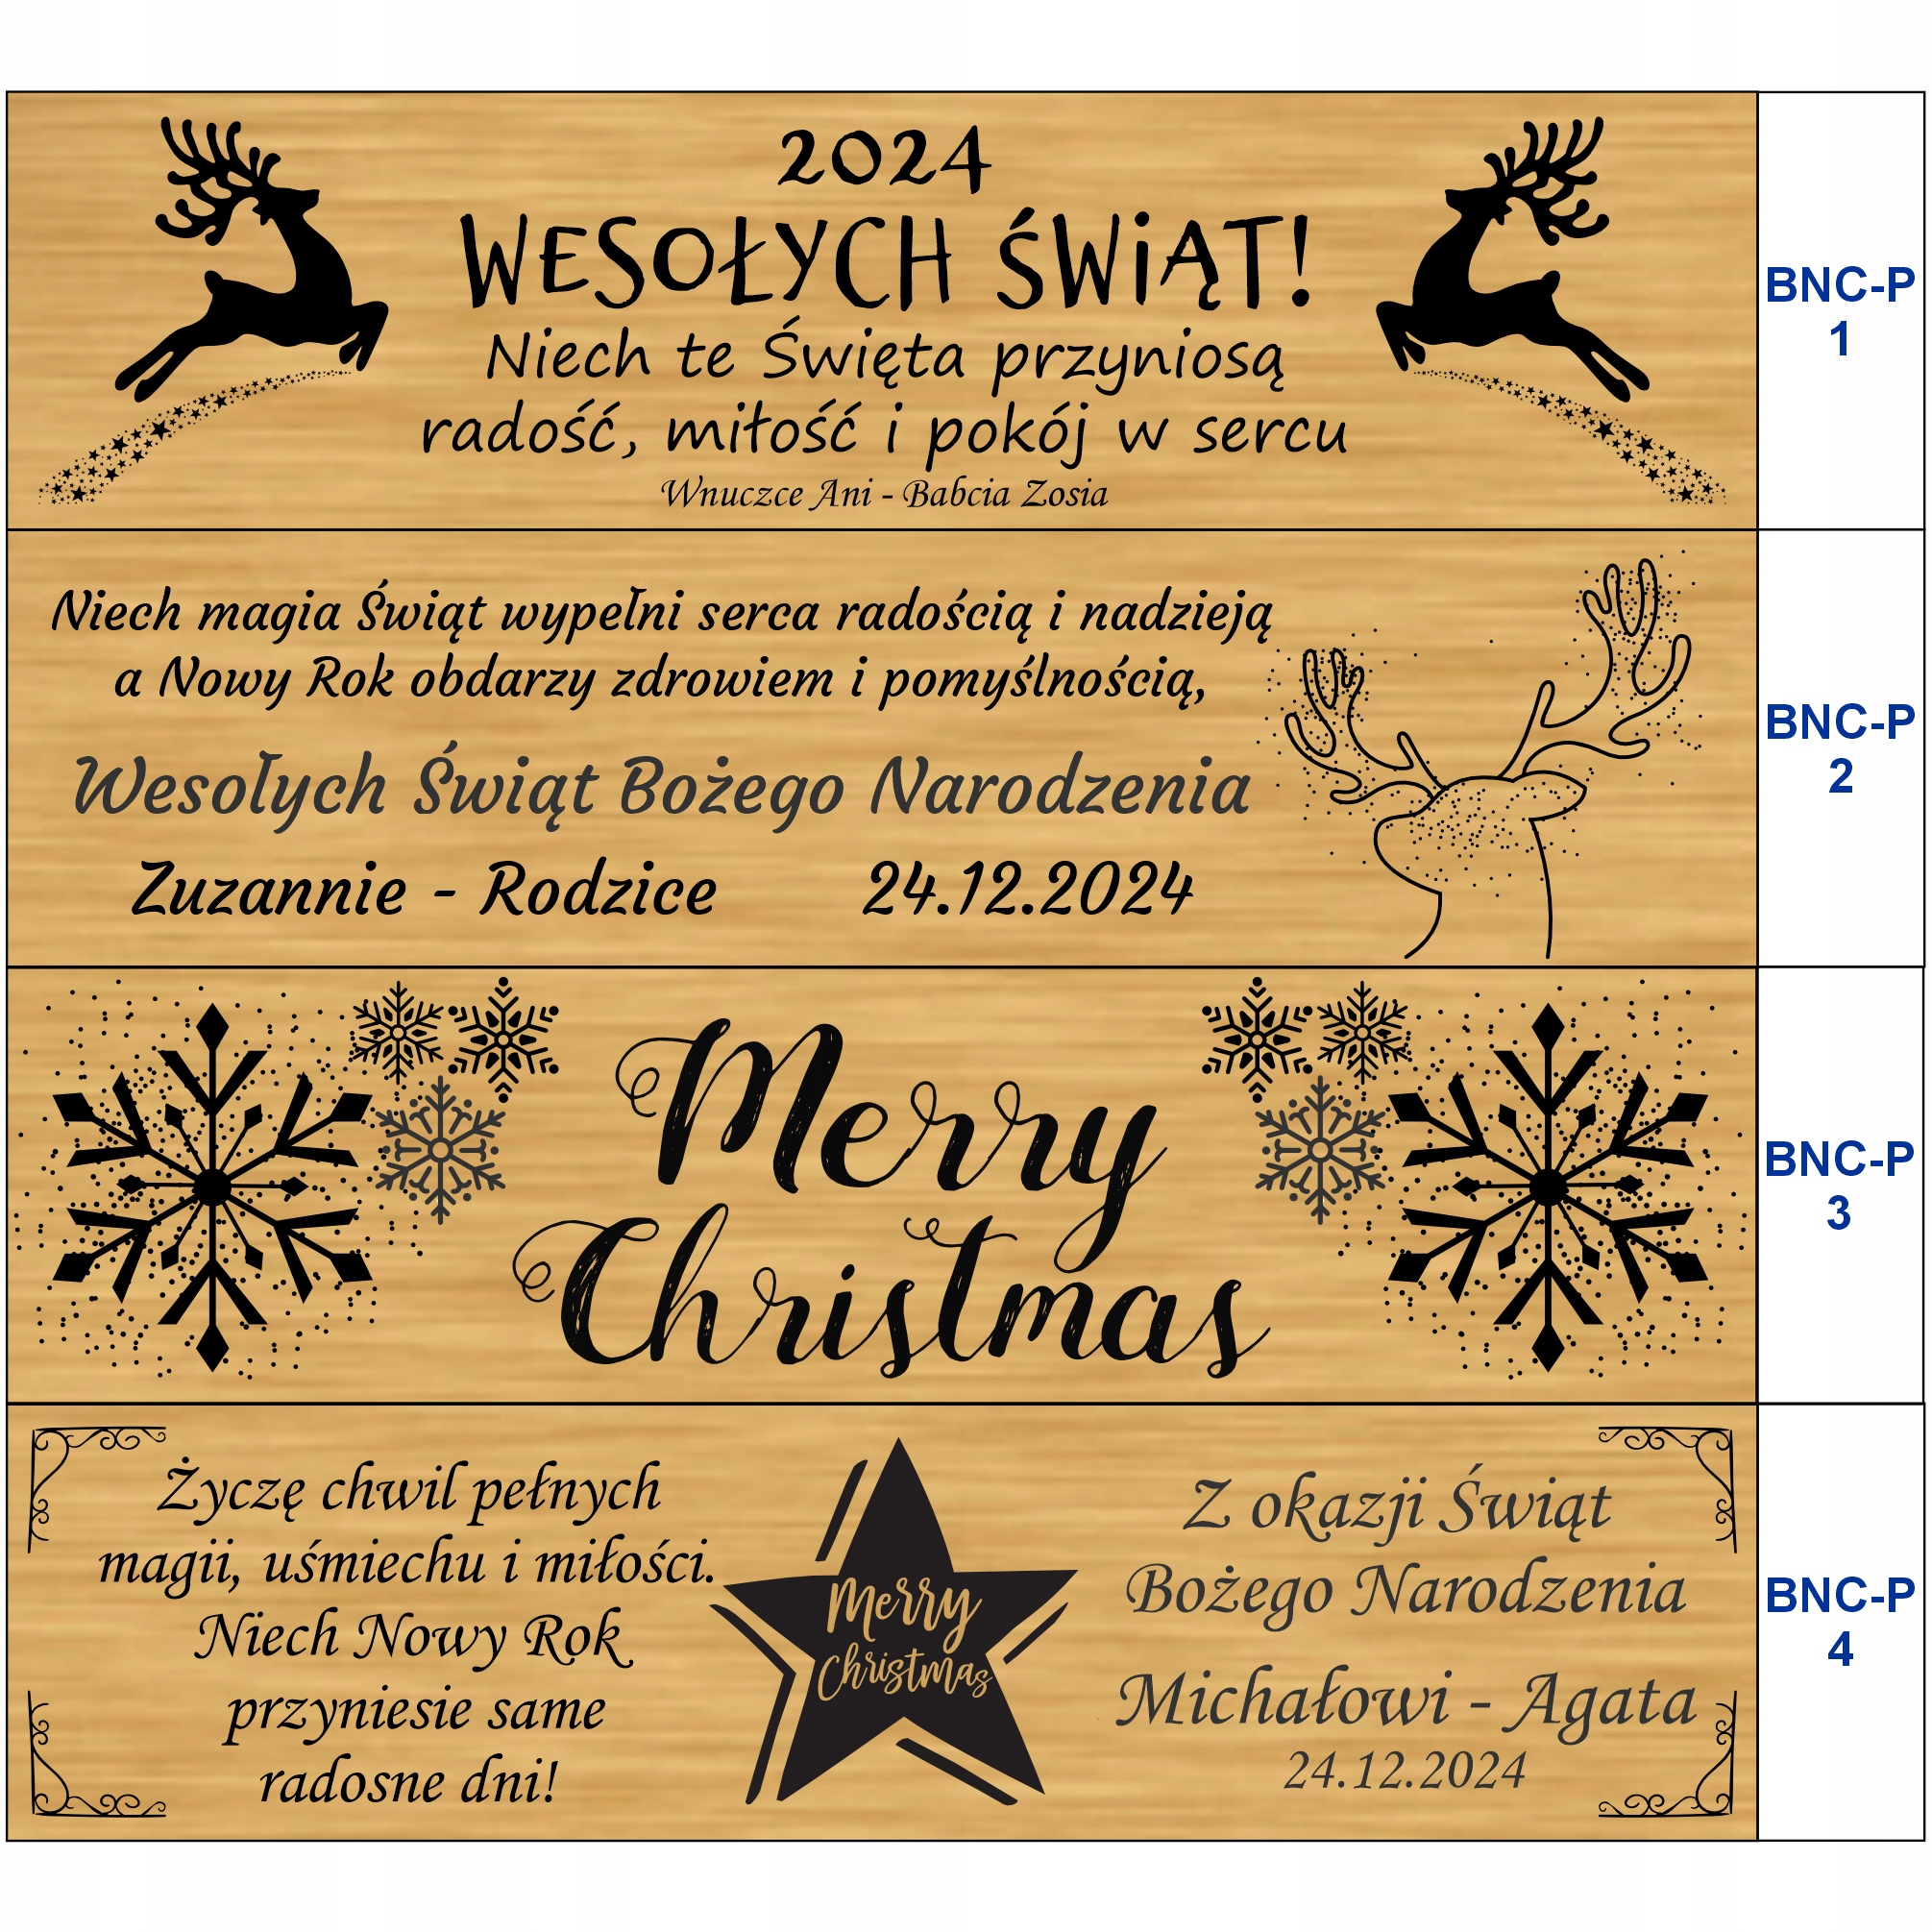 2024
WESOŁYCH ŚWiĄT!
Niech te Święta przyniosą
radość, miłość i pokój w sercu
Wnuczce Ani - Babcia Zosia
BNC-P
1
Niech magia Świąt wypełni serca radością i nadzieją
a Nowy Rok obdarzy zdrowiem i pomyślnością,
Wesołych Świąt Bożego Narodzenia
Zuzannie - Rodzice 24.12.2024
BNC-P
2
Merry
Christmas
BNC-P
3
Życzę chwil pełnych
magii, uśmiechu i miłości.
Niech Nowy Rok
przyniesie same
radosne dni!
Merry
Christmas
Z okazji Świąt
Bożego Narodzenia
Michałowi - Agata
24.12.2024
BNC-P
4